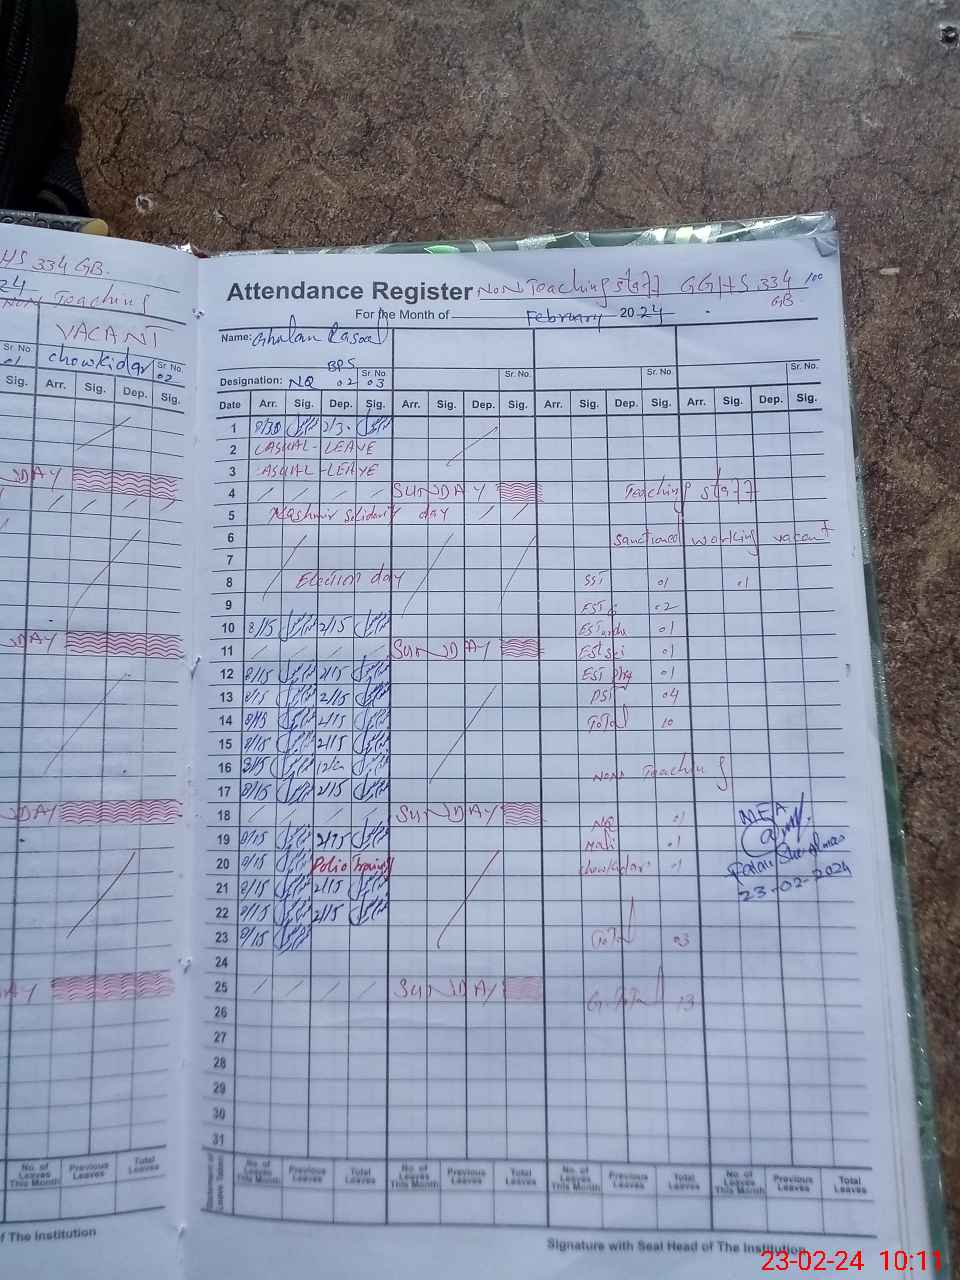 HS 334 GB.
24
NON Teaching
VACANT
Sr. No
01
chowkidar
Sr. No.
02
Sig. Arr. Sig. Dep. Sig.
DAY
DAY
DAY
AY
No. of Leaves This Month Previous Leaves Total Leaves
f The Institution
Attendance Register NON Teaching staff GGHS 334 GB
For the Month of February 2024
Name: Ghulam Rasool
Designation: NQ BPS 02 Sr. No. 03 Sr. No. Sr. No. Sr. No.
Date Arr. Sig. Dep. Sig. Arr. Sig. Dep. Sig. Arr. Sig. Dep. Sig. Arr. Sig. Dep. Sig.
1 8/30
2 CASUAL - LEAVE
3 CASUAL - LEAVE
4 SUNDAY Teaching staff
5 Kashmir Solidarity day
6 Sanctioned working vacant
7
8 Election day SST 01 01
9 EST 02
10 8/15 2/15 01
11 SUNDAY EST sci 01
12 8/15 2/15 EST phy 01
13 8/15 2/15 PST 04
14 8/15 2/15 Total 10
15 8/15 2/15
16 8/15
17 8/15 2/15 NON Teaching
18 SUNDAY NQ 01
19 8/15 2/15 Mali 01
20 8/15 Polio Training chowkidar 01
21 8/15 2/15
22 8/15 2/15
23 8/15 Total 03
24
25 SUNDAY G.Total 13
26
27
28
29
30
31
MEA
23-02-2024
No. of Leaves This Month Previous Leaves Total Leaves No. of Leaves This Month Previous Leaves Total Leaves No. of Leaves This Month Previous Leaves Total Leaves No. of Leaves This Month Previous Leaves Total Leaves
Signature with Seal Head of The Institution
23-02-24 10:11